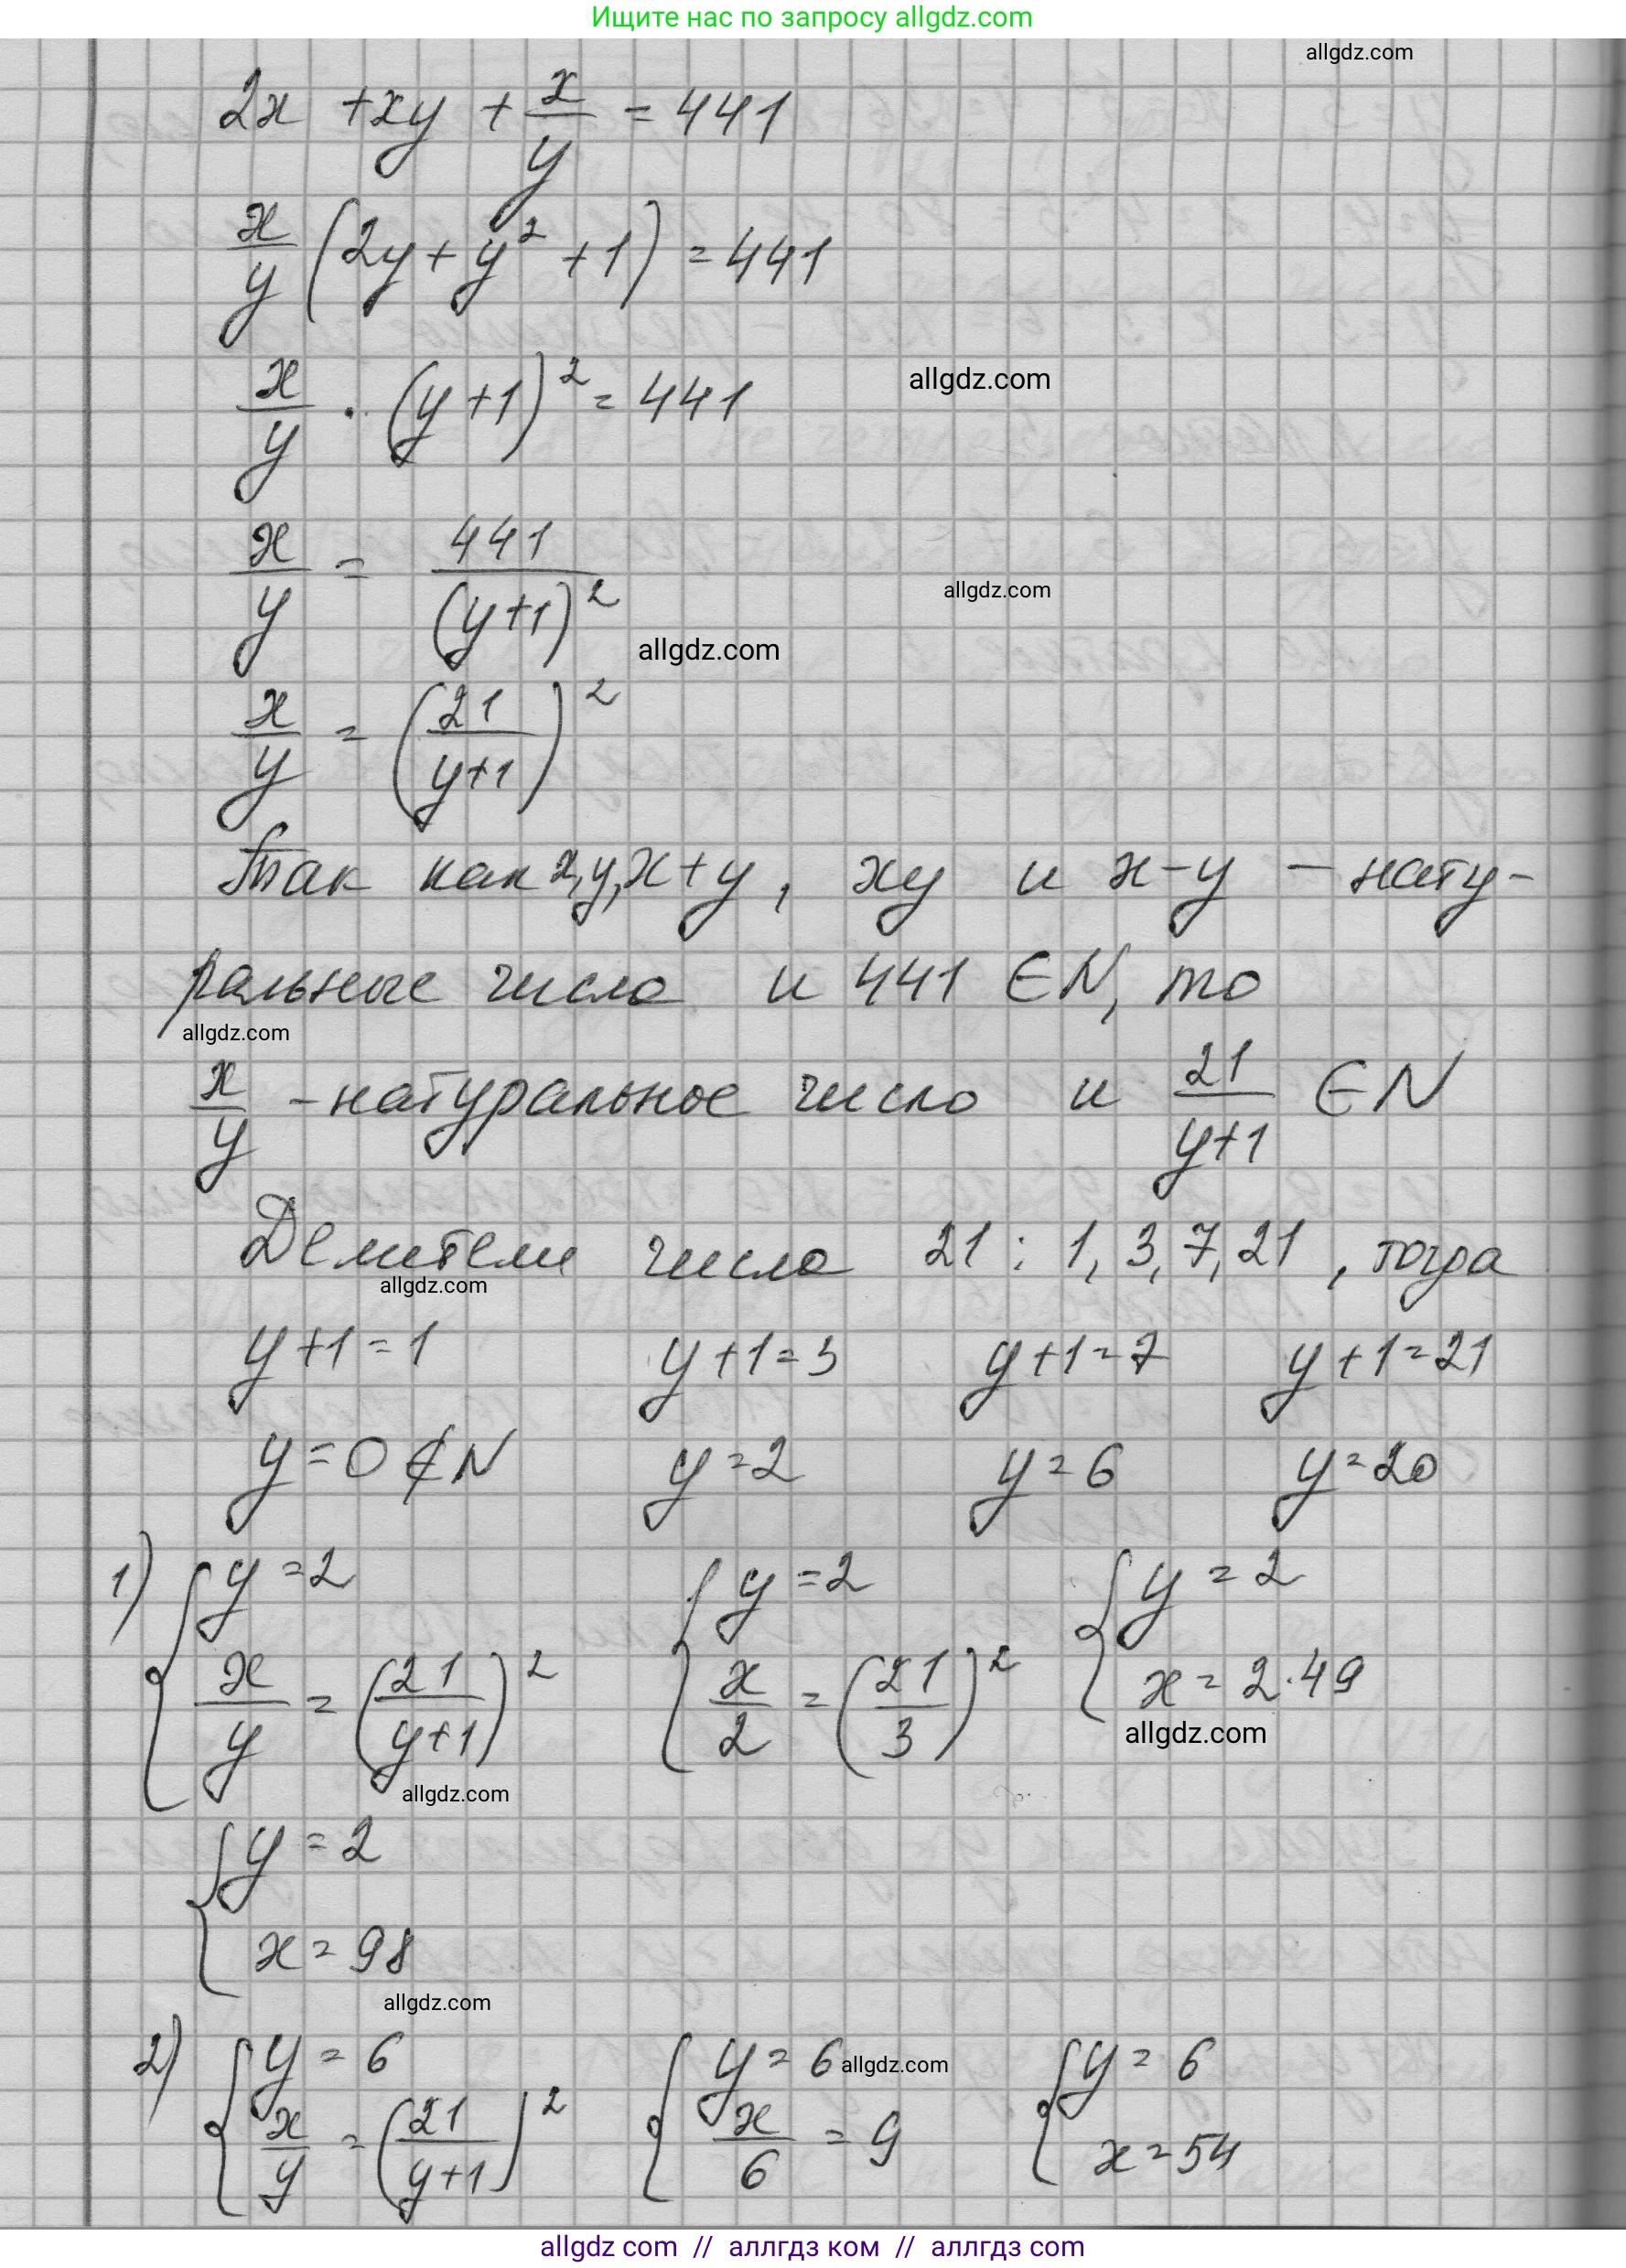 Ищите нас по запросу allgdz.com
allgdz.com
2x + xy + x/y = 441
x/y (2y + y² + 1) = 441
x/y · (y+1)² = 441
allgdz.com
x/y = 441/(y+1)²
allgdz.com
allgdz.com
x/y = (21/(y+1))²
Так как x, y, x+y, xy и x-y – нату-
ральные числа и 441 ∈ N, то
allgdz.com
x/y - натуральное число и 21/(y+1) ∈ N
Делители числа 21: 1, 3, 7, 21, тогда
allgdz.com
y+1=1 y+1=3 y+1=7 y+1=21
y=0 ∉ N y=2 y=6 y=20
1) { y=2 { y=2 { y=2
x/y = (21/(y+1))² x/2 = (21/3)² x=2·49
allgdz.com
allgdz.com
{ y=2
x=98
allgdz.com
2) { y=6 { y=6 { y=6
allgdz.com
x/y = (21/(y+1))² x/6 = 9 x=54
allgdz com // аллгдз ком // аллгдз com